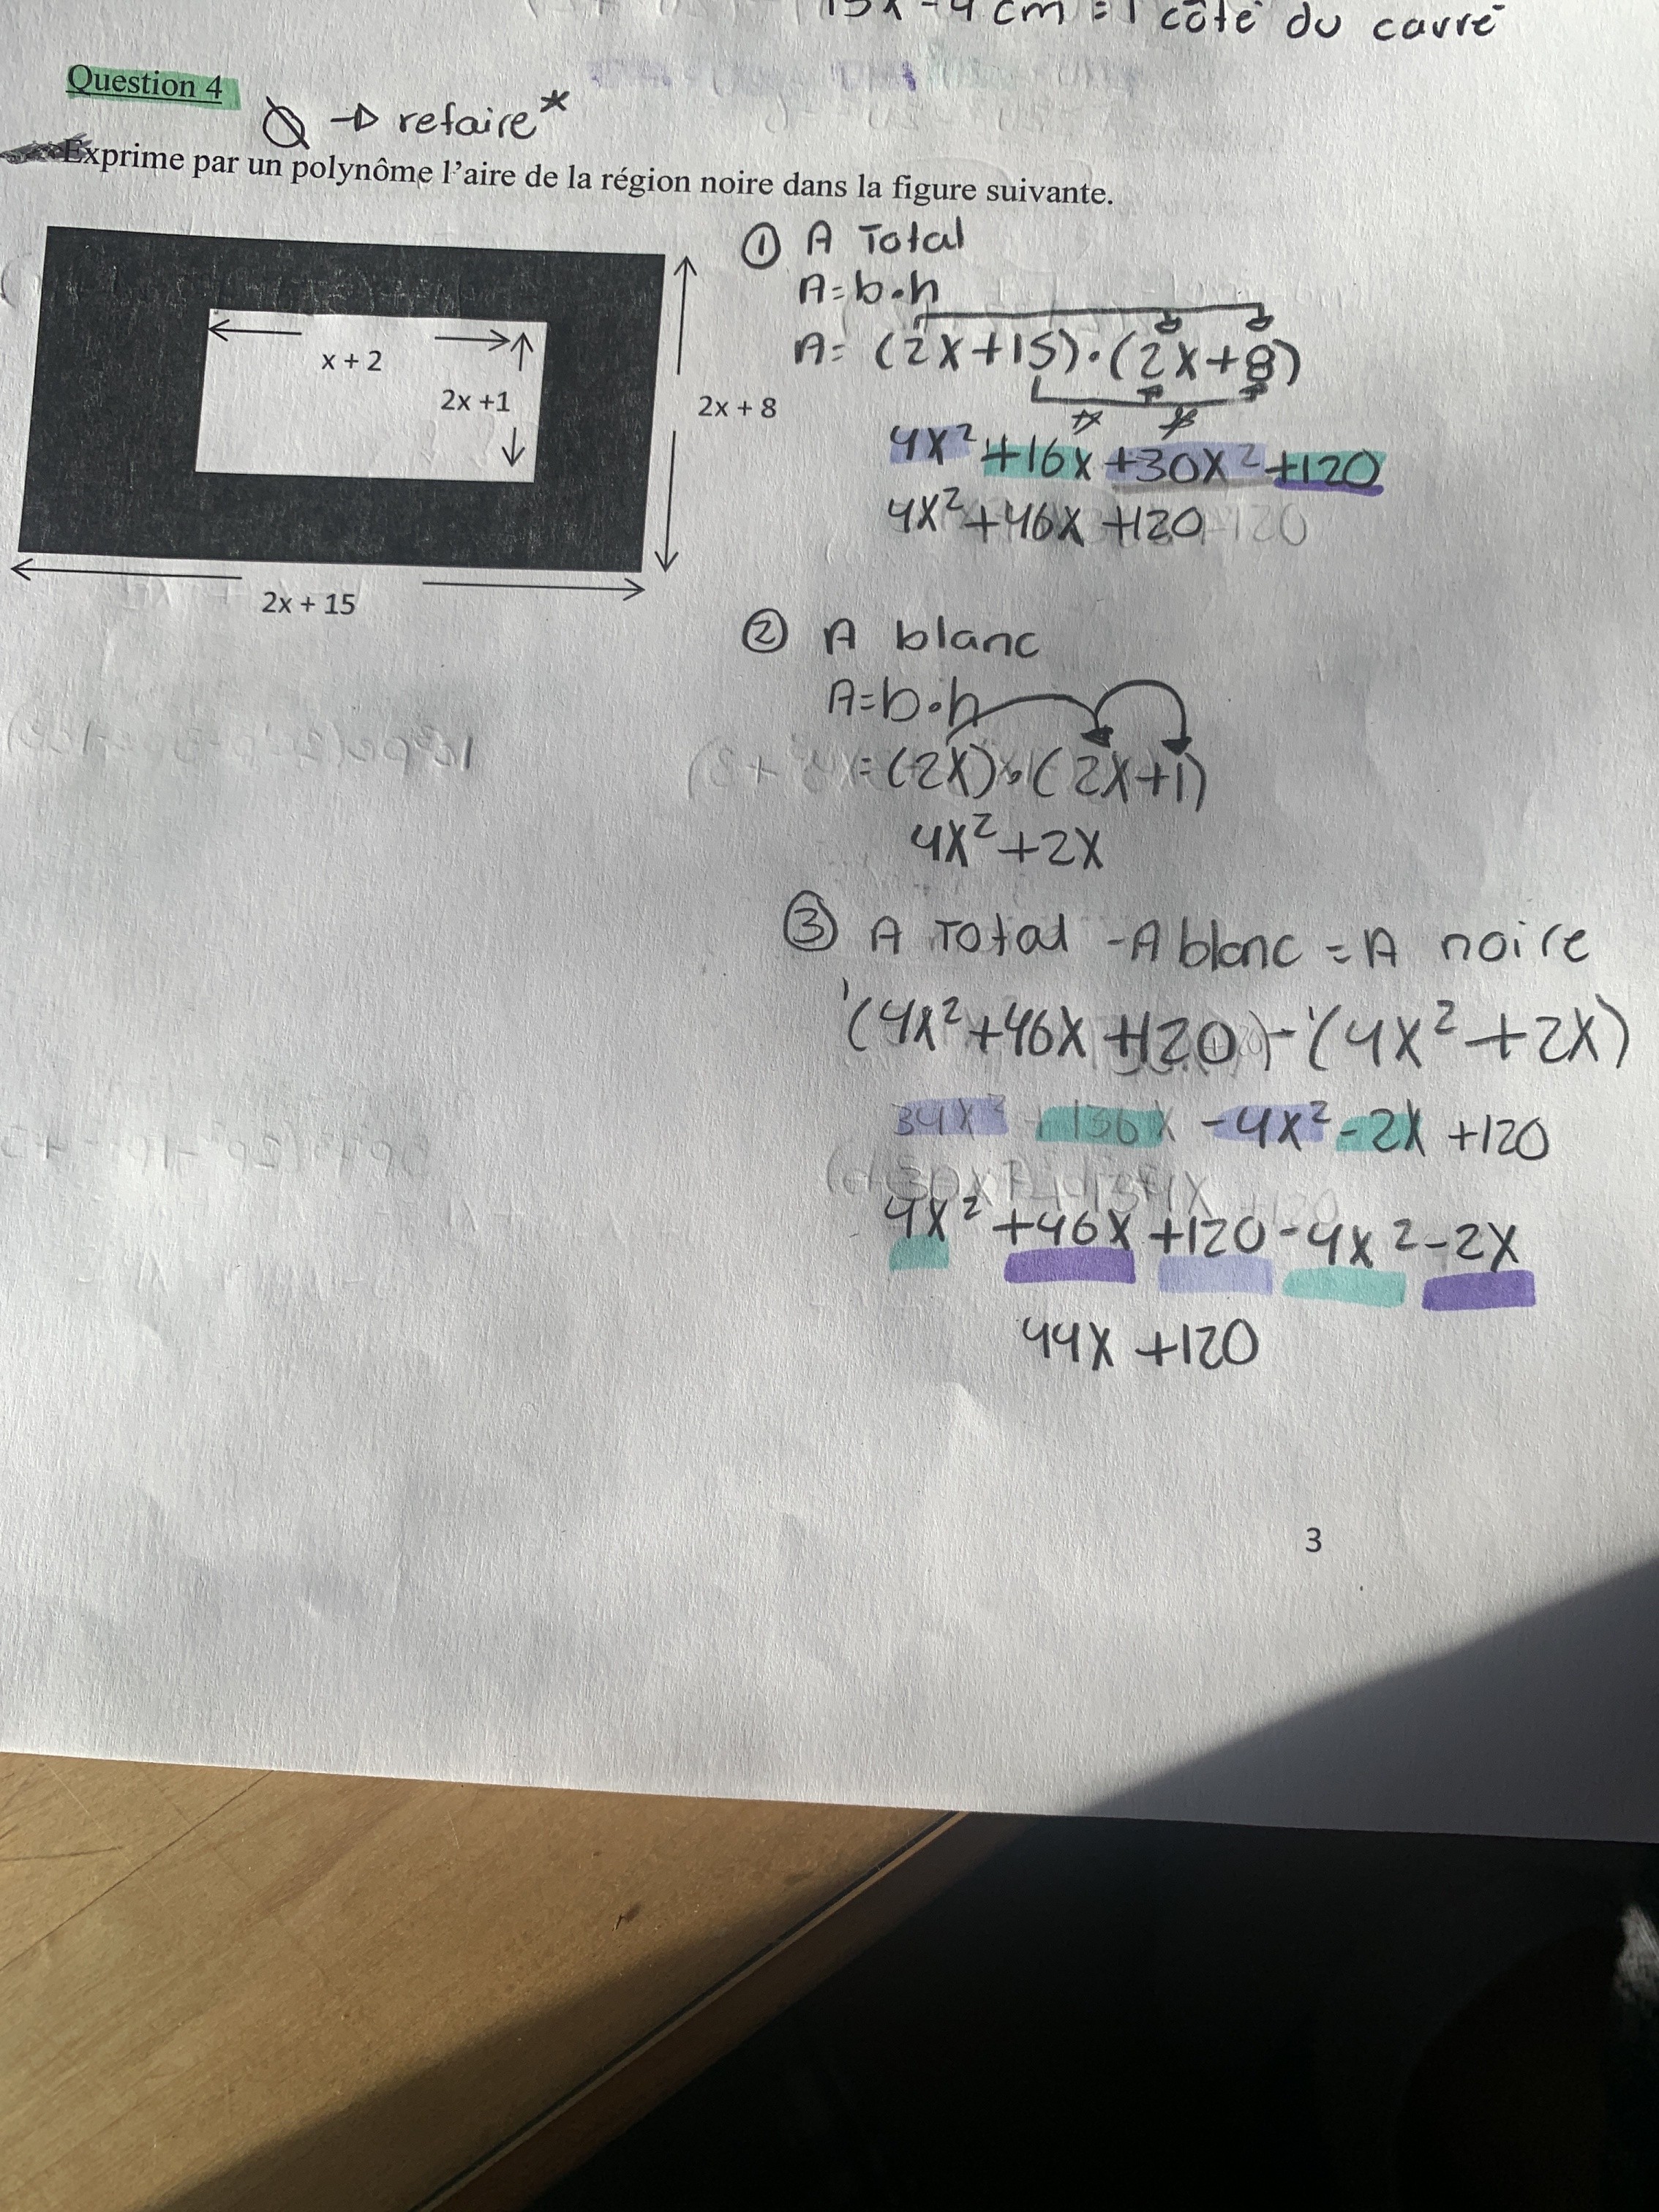 15x - 4 cm = 1 côté du carré
Question 4
→ refaire*
Exprime par un polynôme l'aire de la région noire dans la figure suivante.
x + 2
2x +1
2x + 8
2x + 15
① A Total
A = b•h
A = (2x+15)•(2x+8)
4x² +16x +30x² +120
4x² +46x +120
② A blanc
A=b•h
= (2x)•(2x+1)
4x²+2x
③ A Total - A blanc = A noire
(4x²+46x+120)-(4x²+2x)
34x² 136x -4x² -2x +120
4x² +46x +120 -4x² -2x
44x +120
3